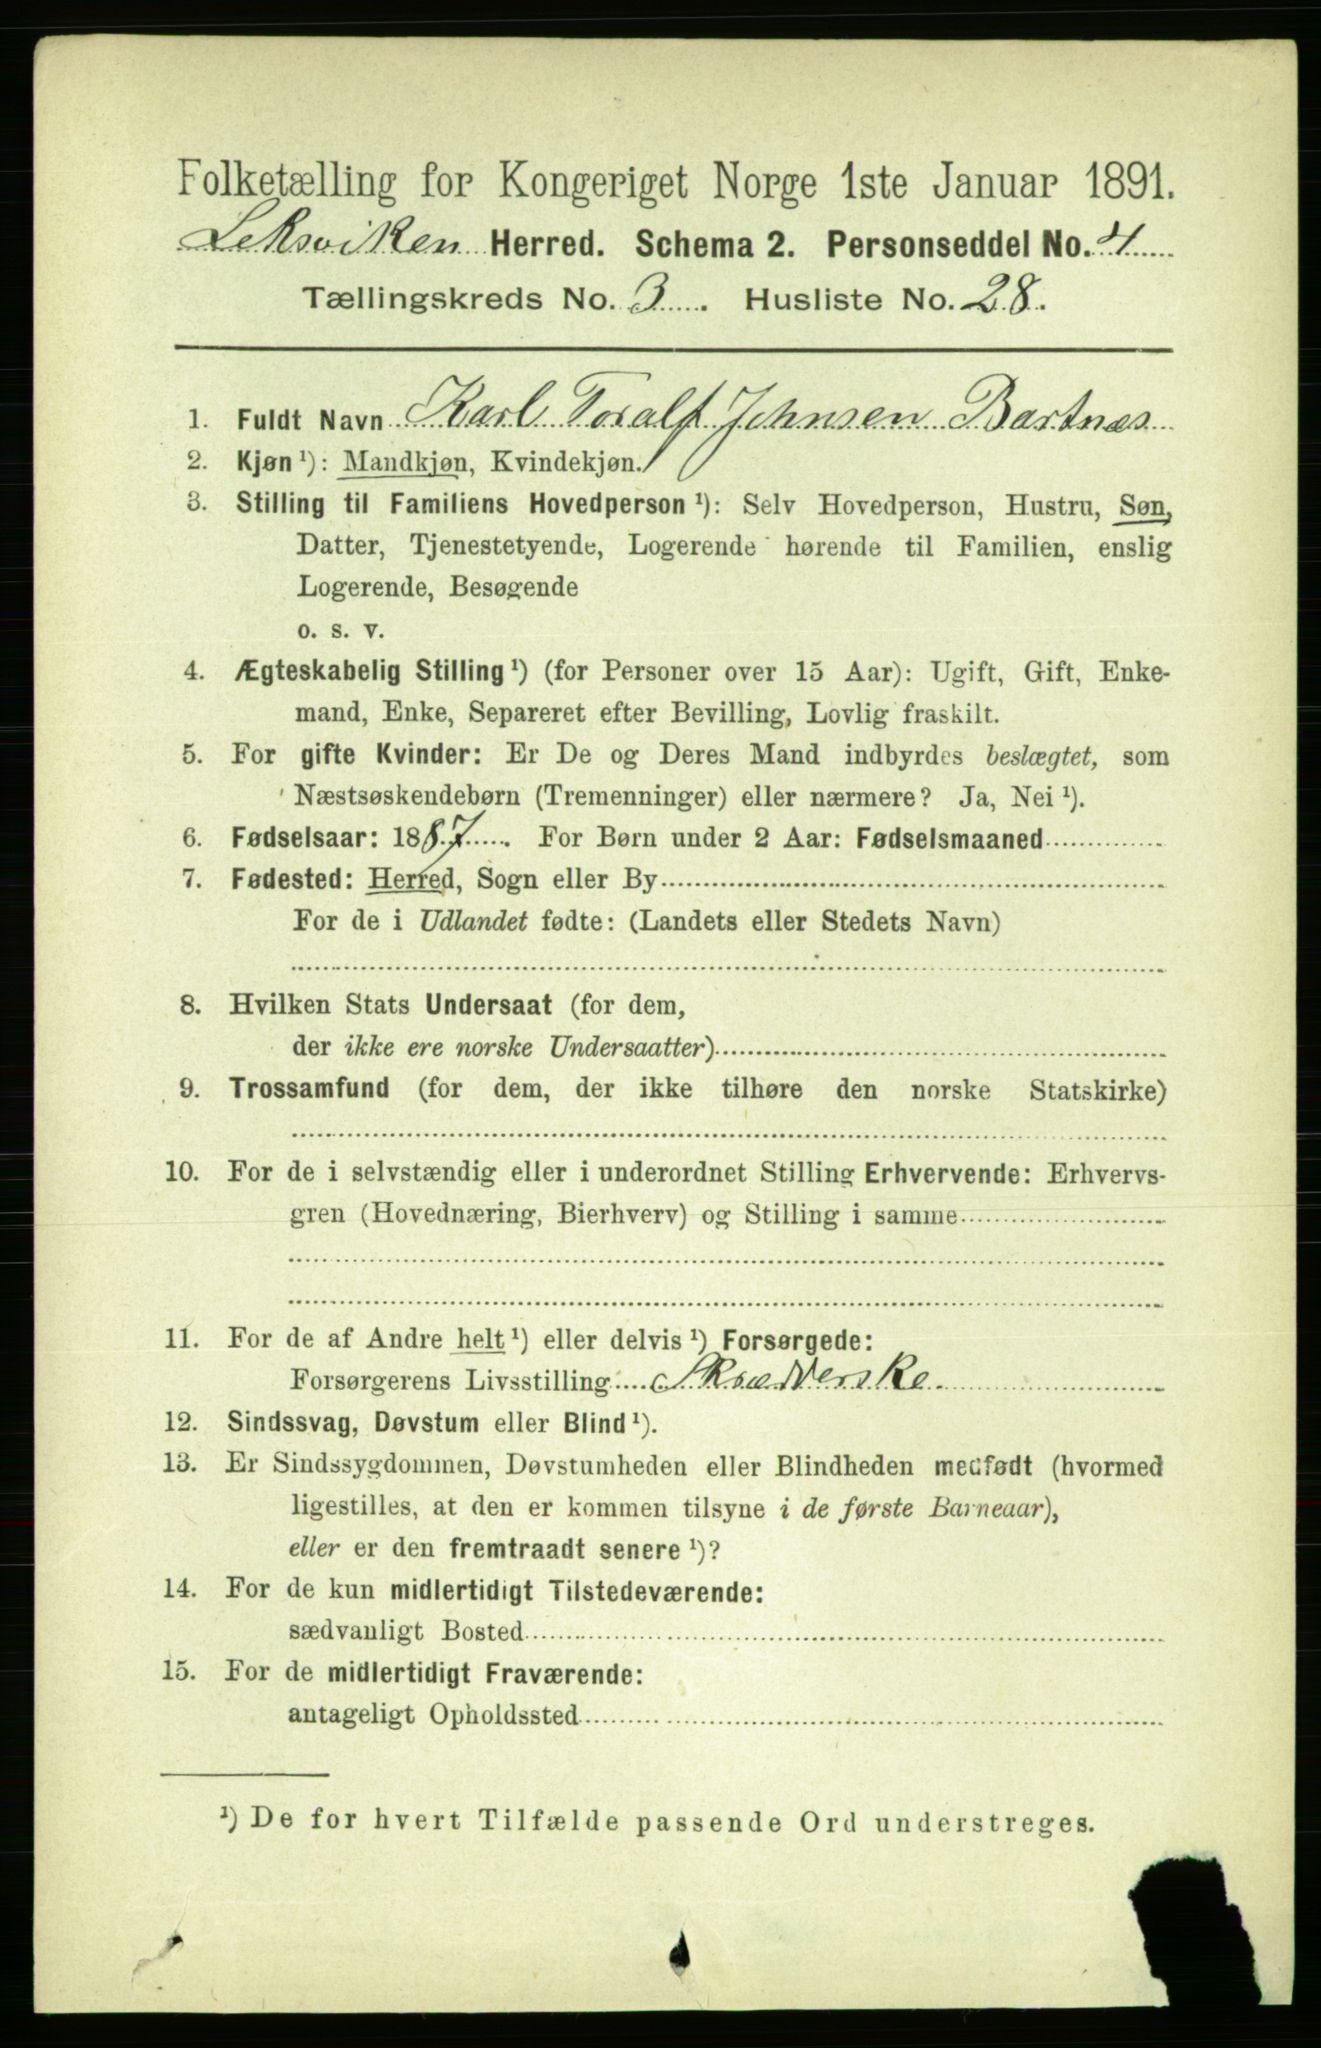 Folketælling for Kongeriget Norge 1ste Januar 1891.
Leksviken Herred. Schema 2. Personseddel No. 4
Tællingskreds No. 3. Husliste No. 28.
1. Fuldt Navn Karl Toralf Johnsen Bartnæs
2. Kjøn ¹): Mandkjøn, Kvindekjøn.
3. Stilling til Familiens Hovedperson ¹): Selv Hovedperson, Hustru, Søn,
Datter, Tjenestetyende, Logerende hørende til Familien, enslig
Logerende, Besøgende
o. s. v.
4. Ægteskabelig Stilling ¹) (for Personer over 15 Aar): Ugift, Gift, Enke-
mand, Enke, Separeret efter Bevilling, Lovlig fraskilt.
5. For gifte Kvinder: Er De og Deres Mand indbyrdes beslægtet, som
Næstsøskendebørn (Tremenninger) eller nærmere? Ja, Nei ¹).
6. Fødselsaar: 1887. For Børn under 2 Aar: Fødselsmaaned
7. Fødested: Herred, Sogn eller By
For de i Udlandet fødte: (Landets eller Stedets Navn)
8. Hvilken Stats Undersaat (for dem,
der ikke ere norske Undersaatter)
9. Trossamfund (for dem, der ikke tilhøre den norske Statskirke)
10. For de i selvstændig eller i underordnet Stilling Erhvervende: Erhvervs-
gren (Hovednæring, Bierhverv) og Stilling i samme
11. For de af Andre helt ¹) eller delvis ¹) Forsørgede:
Forsørgerens Livsstilling Skrædderske.
12. Sindssvag, Døvstum eller Blind ¹).
13. Er Sindssygdommen, Døvstumheden eller Blindheden medfødt (hvormed
ligestilles, at den er kommen tilsyne i de første Barneaar),
eller er den fremtraadt senere ¹)?
14. For de kun midlertidigt Tilstedeværende:
sædvanligt Bosted
15. For de midlertidigt Fraværende:
antageligt Opholdssted
¹) De for hvert Tilfælde passende Ord understreges.